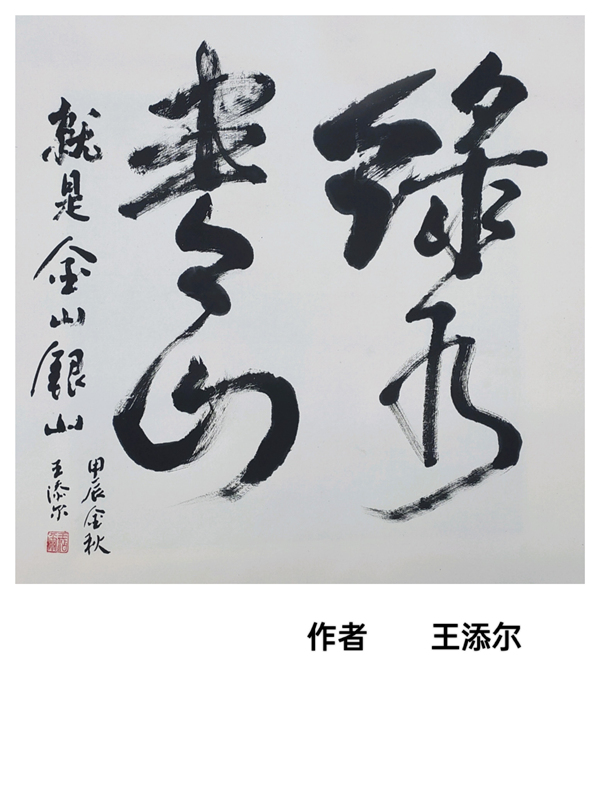 绿水
青山
就是金山银山
甲辰金秋
王添尔
作者 王添尔